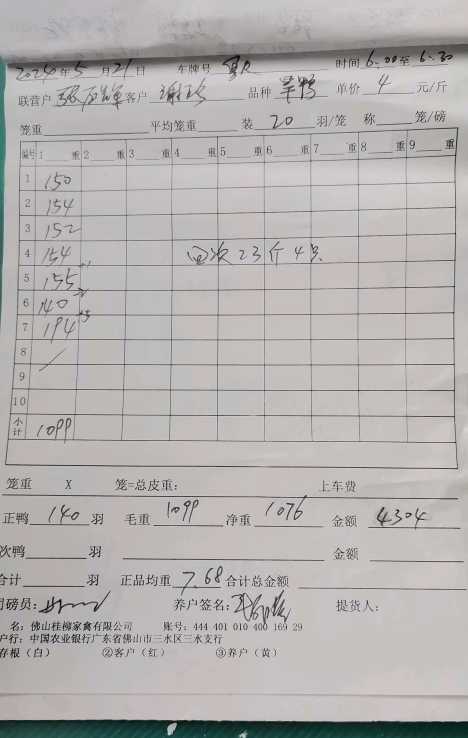 2024年5月21日 车牌号 时间6:00至6:30
联营户 客户 品种 单价 4 元/斤
笼重 平均笼重 装 20 羽/笼 称 笼/磅
编号 1 重 2 重 3 重 4 重 5 重 6 重 7 重 8 重 9 重
1 150
2 154
3 152
4 154 23斤4只
5 155
6 140
7 194
8
9
10
小计 1099
笼重 X 笼=总皮重: 上车费
正鸭 140 羽 毛重 1099 净重 1076 金额 4304
次鸭 羽 金额
合计 羽 正品均重 7.68 合计总金额
司磅员: 养户签名: 提货人:
名: 佛山桂柳家禽有限公司 账号: 444 401 010 400 169 29
户行: 中国农业银行广东省佛山市三水区三水支行
存根(白) ②客户(红) ③养户(黄)